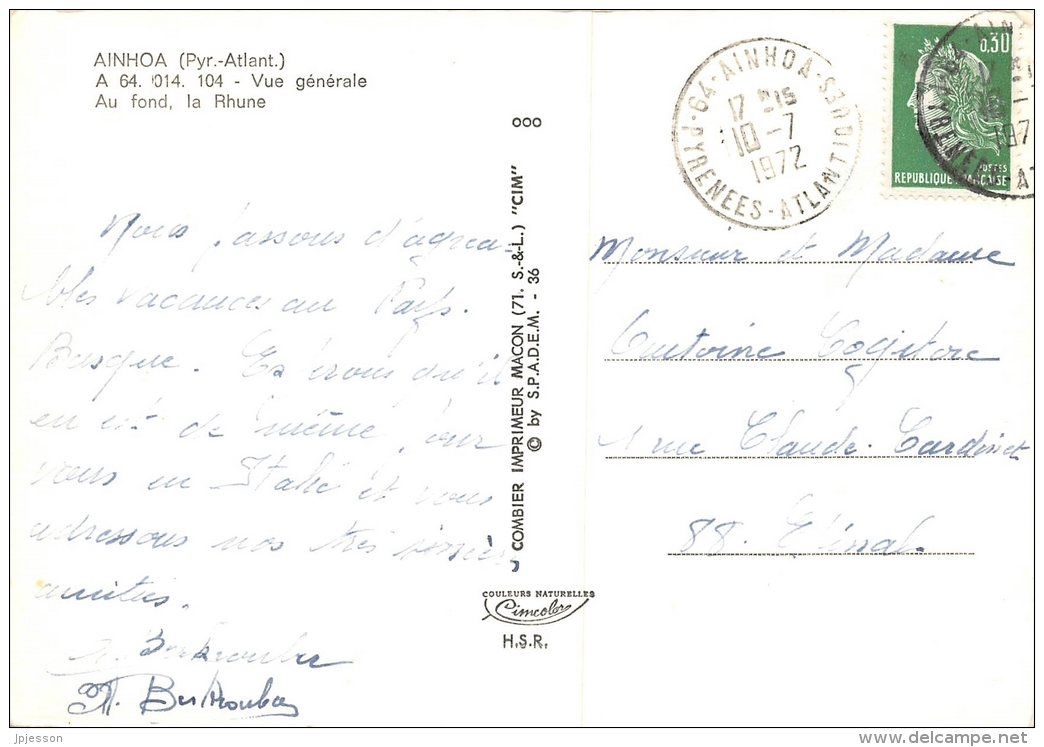 AINHOA (Pyr.-Atlant.)
A 64. 014. 104 - Vue générale
Au fond, la Rhune
Nous passons d'agréa-
bles vacances au Pays.
Basque. Et crois qu'il
en est de même pour
vous en Italie et vous
adressons nos très sincères
amitiés.
COMBIER IMPRIMEUR MACON (71. S.-&-L.) "CIM"
© by S.P.A.D.E.M. - 36
ooo
COULEURS NATURELLES
Cimcolor
H.S.R.
64-AINHOA
PYRENEES-ATLANTIQUES
17 H 15
10 -7
1972
0,30
POSTES
REPUBLIQUE FRANÇAISE
Monsieur et Madame
Antoine
1 rue Claude. Cardinet
88. Epinal.
jpjesson
delcampe.net